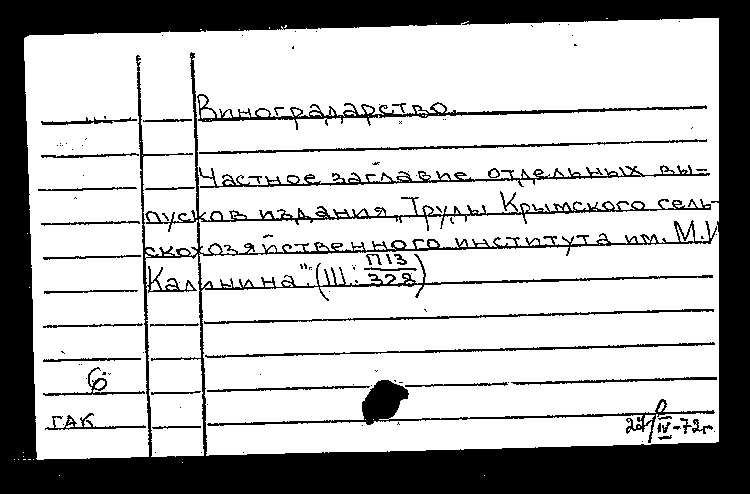 Виноградарство.
Частное заглавие отдельных вы=
пусков издания „Труды Крымского сель-
скохозяйственного института им. М.И
Калинина". (III. П13/328)
6
ГАК
IV-72г.